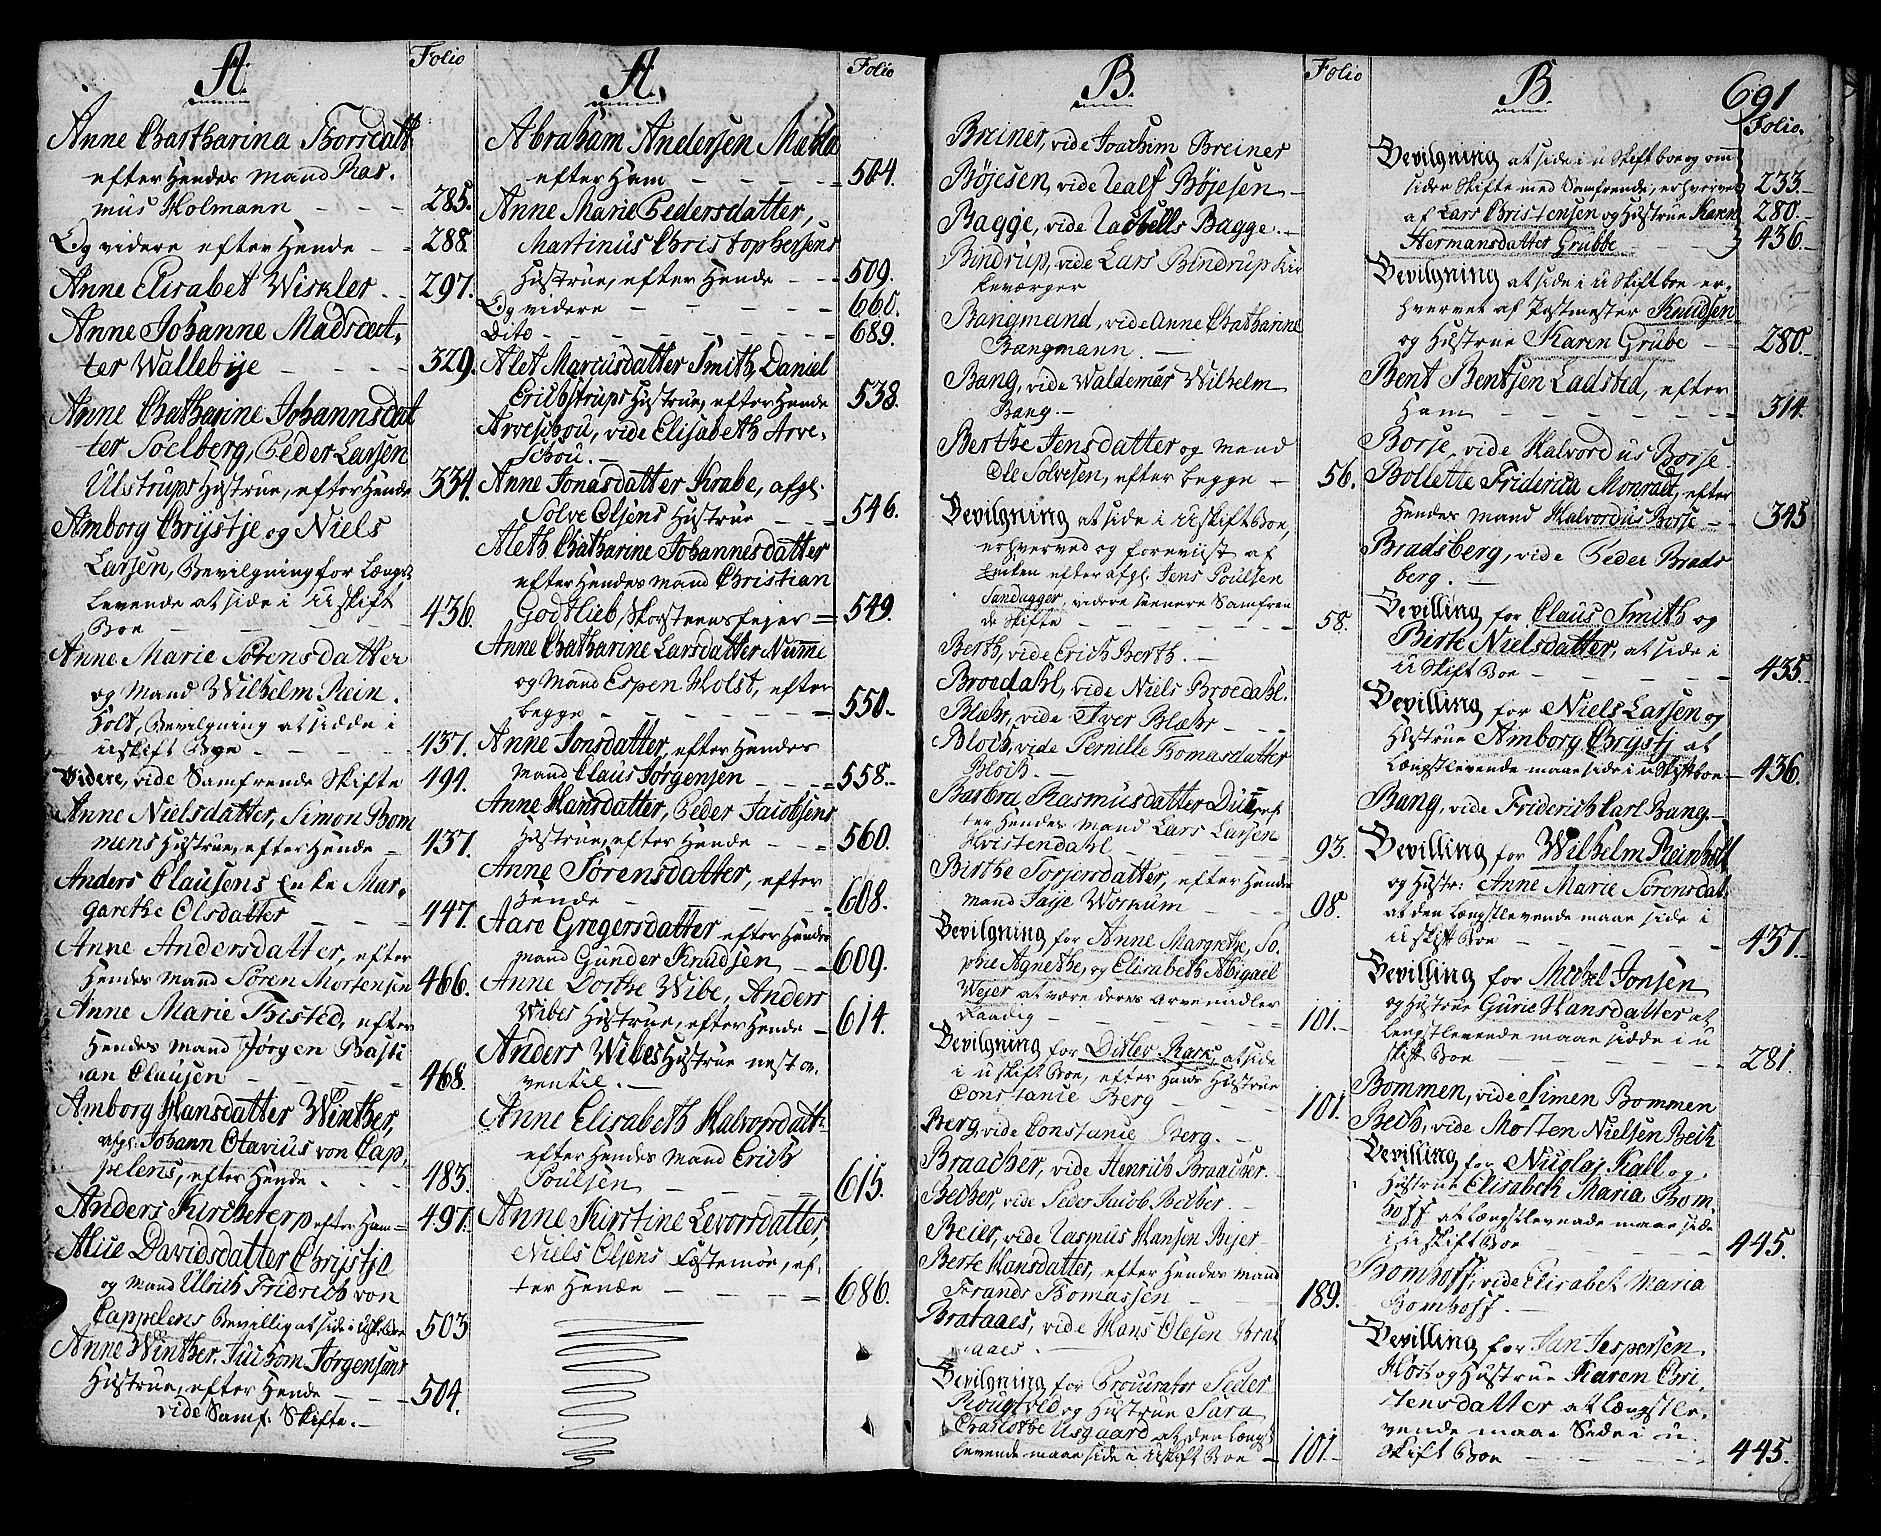 A.
Folio
Anne Chatharina Thorsdatt
efter Hendes Mand Ras-
mus Holmann - - - 285.
Og videre efter Hende - - 288.
Anne Elisabet Winkler - - 297.
Anne Johanne Madsdat-
ter Wallebÿe - - - - 329.
Anne Chatharine Johannsdat
ter Soelberg, Peder Larsen
Ulstrups Hustrue, efter Hende 334.
Amborg Chrÿstje og Niels
Larsen, Bevilgning for Længst
Levende at side i Uskift
Boe - - - - 436.
Anne Marie Sørensdatter
og Mand Wilhelm Rein.
holt, Bevilgning at sidde i
Uskift Boe - - - 437.
Videre, vide Samfrende Skifte 491.
Anne Nielsdatter, Simon Bom
mens Hustrue, efter Hende - 437.
Anders Clausens Enke Mar-
garethe Olsdatter - - - 447.
Anne Andersdatter, efter
Hendes Mand Søren Mortensen 466.
Anne Marie Thisted, efter
Hendes Mand Jørgen Basti
an Clausen - - - - 468.
Amborg Hansdatter Winther,
afgl. Johann Otavius von Cap
pelens, efter Hende - - - 483.
Anders Kircheterp efter Ham - 497.
Alice Davidsdatter Chrÿstje
og Mand Ulrich Fridrich von
Cappelens Bevillig at side i Uskift Boe 503
Anne Winther, Juchom Jørgensens
Hustrue, efter Hende - - 504.
vide Samf: Skifte. -
A.
Folio
Abraham Andersen
efter Ham - - - - 504.
Anne Marie Pedersdatter,
Martinus Christophersens
Hustrue, efter Hende - - 509.
Og videre - - - - 660.
Dito - - - - - 689.
Alet Marcusdatter Smith, Daniel
Erichstrups Hustrue, efter Hende 538.
Arveschou, vide Elisabeth Arve-
schou. -
Anne Jonasdatter Krabe, afgl.
Solve Olsens Hustrue - - - 546.
Aleth Chatharine Johannesdatter
efter Hendes Mand Christian
Godtlieb, Skorsteensfejer - 549.
Anne Chatharine Larsdatter Numme
og Mand Espen Holst, efter
begge - - - - - 550.
Anne Jonsdatter, efter Hendes
Mand Claus Jørgensen - - 558.
Anne Hansdatter, Peder Jacobsens
Hustrue, efter Hende - - 560.
Anne Sørensdatter, efter
Hende - - - - 608.
Aase Gregersdatter efter Hendes
Mand Gunder Knudsen - - 609.
Anne Dorthe Wibe, Anders
Wibes Hustrue, efter Hende - 614.
Anders Wibes Hustrue nest o-
ventil. -
Anne Elisabeth Halvorsdatt:
efter Hendes Mand Erich
Poulsen - - - - 615.
Anne Kirstine Levorsdatter,
Niels Olsens Fostemor, ef-
ter Hende - - - - 686.
B.
Folio
Breiner, vide Joachim Breiner
Bøjesen, vide Ualf Bøjesen -
Bagge, vide Bagge. -
Bindrup, vide Lars Bindrup Kir
keværger
Bangmand, vide Anne Chatharine
Bangmann. -
Bang, vide Waldemar Wilhelm
Bang. -
Berthe Jensdatter og Mand
Ole Solvesen, efter begge - 56.
Bevilgning at side i Uskift Boe,
erhverved og foreviist af
Enken efter afgl. Jens Poulsen
Sandagger, videre sennere Samfren
de Skifte - - - - 58.
Berth, vide Erich Berth. -
Broedahl, vide Niels Broedahl.
Blæhr, vide Iver Blæhr - - -
Bloch, vide Pernille Thomasdatter
Bloch. -
Barbra Rasmusdatter Due, ef-
ter Hendes Mand Lars Larsen
Hvistendahl - - - 93.
Birthe Torjersdatter, efter Hendes
Mand Jaÿe Workum - - - 98.
Bevilgning for Anne Margrethe, So-
phie Agnethe, og Elisabeth Abigael
Wejer at være deres arvemidler
Raadig - - - - 101.
Bevilgning for Ditlev Rark, at side
i Uskift Boe, efter Hans Hustrue
Constance Berg - - - 101.
Berg, vide Constance Berg. -
Braacher, vide Henrich Braacher.
Becher, vide Peder Jacob Becher. -
Beier, vide Rasmus Hansen Bejer -
Berte Hansdatter, efter Hendes Mand
Frands Thomassen - - - 189.
Brataaes, vide Hans Olesen Brat
aaes. -
Bevilgning for Procurator Peder
Rougtved og Hustrue Sara
Charlothe Usgaard at den Længst
Levende maae side i Uskift Boe - 101.
B.
691
Folio.
Bevilgning at side i Uskift boe og om
sider Skifte med Samfrende, erhvervet 233.
af Lars Christensen og Hustrue Karen 280.
Hermansdatter Grubbe - - - 436.
Bevilgning at side i Uskift boe er-
hvervet af Postmester Knudsen
og Hustrue Karen Grube - - 280.
Bent Bentsen Ladsted, efter
Ham - - - - - 314.
Borse, vide Halvordus Borse.
Bollette Friderica Monradt, efter
Hendes Mand Halvordus Borse - 345
Bradsberg, vide Peder Brads
berg. -
Bevilling for Claus Smith og
Berte Nielsdatter, at side i
Uskift Boe - - - - 435.
Bevilling for Niels Larsen og
Hustrue Amborg Chrÿstj at
Længstlevende maae side i Uskift boe 436.
Bang, vide Friderich Carl Bang. -
Bevilling for Wilhelm Reinholt
og Hustr: Anne Marie Sørensdat.
at den Længstlevende maae side i
Uskift Boe - - - - 437.
Bevilling for Michel Jonsen
og Hustrue Gurie Hansdatter at
Længstlevende maae sidde i U
skift Boe - - - - 281.
Bommen, vide Simen Bommen
Bech, vide Morten Nielsen Bech
Bevilling for Nicolaj Kall og
Hustrue Elisabeth Maria Bom-
hoff at Længstlevnade maae side
i Uskift Boe - - - - 445.
Bomhoff, vide Elisabet Maria
Bomhoff. -
Bevilling for Jan Jespersen
Høst og Hustrue Karen Chri-
stensdatter at Længstle-
vende maae Side i U.
skift Boe - - - - 445.